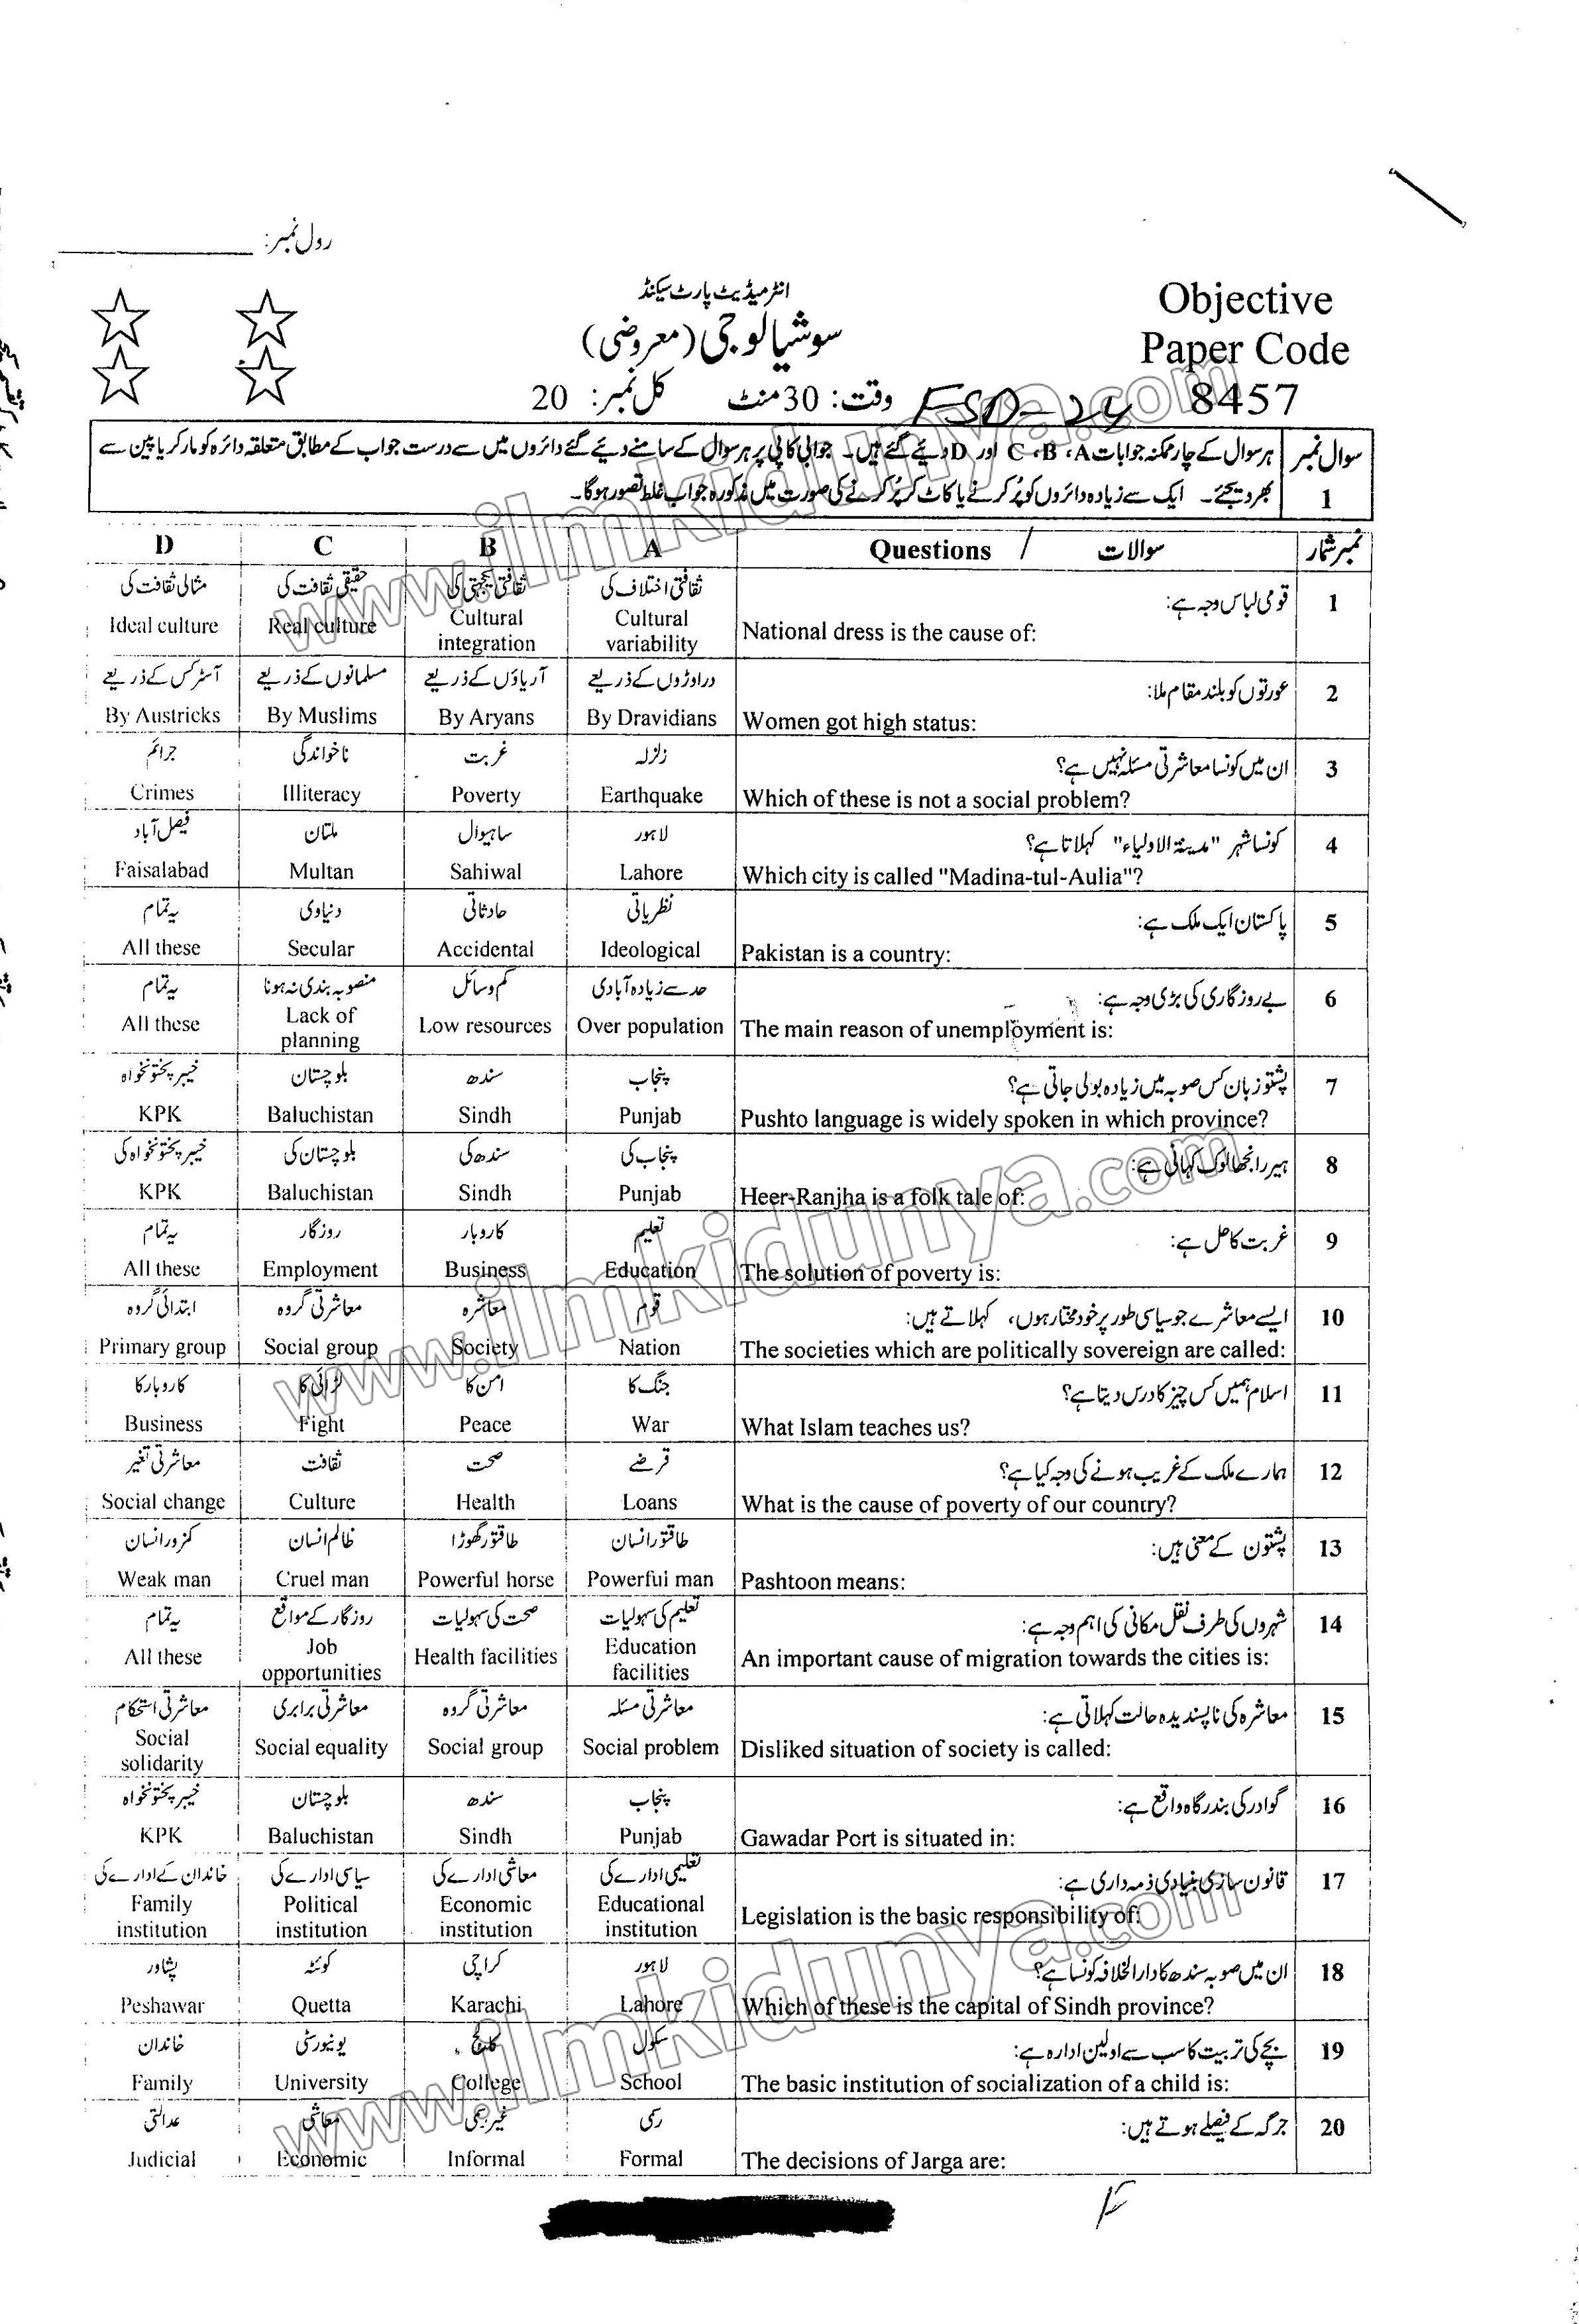 رول نمبر:
انٹرمیڈیٹ پارٹ سیکنڈ
Objective
سوشیالوجی (معروضی)
Paper Code
وقت: 30 منٹ کل نمبر: 20
FSD-24
8457
سوال نمبر 1
ہر سوال کے چار ممکنہ جوابات A، B، C اور D دیئے گئے ہیں۔ جوابی کاپی پر ہر سوال کے سامنے دیئے گئے دائروں میں سے درست جواب کے مطابق متعلقہ دائرہ کو مارکر یا پین سے
بھر دیجئے۔ ایک سے زیادہ دائروں کو پُر کرنے یا کاٹ کر پُر کرنے کی صورت میں مذکورہ جواب غلط تصور ہوگا۔
نمبر شمار سوالات / Questions A B C D
1 قومی لباس وجہ ہے: ثقافتی اختلاف کی ثقافتی یکجہتی کی حقیقی ثقافت کی مثالی ثقافت کی
National dress is the cause of: Cultural variability Cultural integration Real culture Ideal culture
2 عورتوں کو بلند مقام ملا: دراوڑوں کے ذریعے آریاؤں کے ذریعے مسلمانوں کے ذریعے آسٹرکس کے ذریعے
Women got high status: By Dravidians By Aryans By Muslims By Austricks
3 ان میں کونسا معاشرتی مسئلہ نہیں ہے؟ زلزلہ غربت ناخواندگی جرائم
Which of these is not a social problem? Earthquake Poverty Illiteracy Crimes
4 کونسا شہر "مدینۃ الاولیاء" کہلاتا ہے؟ لاہور ساہیوال ملتان فیصل آباد
Which city is called "Madina-tul-Aulia"? Lahore Sahiwal Multan Faisalabad
5 پاکستان ایک ملک ہے: نظریاتی حادثاتی دنیاوی یہ تمام
Pakistan is a country: Ideological Accidental Secular All these
6 بے روزگاری کی بڑی وجہ ہے: حد سے زیادہ آبادی کم وسائل منصوبہ بندی نہ ہونا یہ تمام
The main reason of unemployment is: Over population Low resources Lack of planning All these
7 پشتو زبان کس صوبہ میں زیادہ بولی جاتی ہے؟ پنجاب سندھ بلوچستان خیبر پختونخواہ
Pushto language is widely spoken in which province? Punjab Sindh Baluchistan KPK
8 ہیر رانجھا لوک کہانی ہے: پنجاب کی سندھ کی بلوچستان کی خیبر پختونخواہ کی
Heer-Ranjha is a folk tale of: Punjab Sindh Baluchistan KPK
9 غربت کا حل ہے: تعلیم کاروبار روزگار یہ تمام
The solution of poverty is: Education Business Employment All these
10 ایسے معاشرے جو سیاسی طور پر خود مختار ہوں، کہلاتے ہیں: قوم معاشرہ معاشرتی گروہ ابتدائی گروہ
The societies which are politically sovereign are called: Nation Society Social group Primary group
11 اسلام ہمیں کس چیز کا درس دیتا ہے؟ جنگ کا امن کا لڑائی کا کاروبار کا
What Islam teaches us? War Peace Fight Business
12 ہمارے ملک کے غریب ہونے کی وجہ کیا ہے؟ قرضے صحت ثقافت معاشرتی تغیر
What is the cause of poverty of our country? Loans Health Culture Social change
13 پشتون کے معنی ہیں: طاقتور انسان طاقتور گھوڑا ظالم انسان کمزور انسان
Pashtoon means: Powerful man Powerful horse Cruel man Weak man
14 شہروں کی طرف نقل مکانی کی اہم وجہ ہے: تعلیم کی سہولیات صحت کی سہولیات روزگار کے مواقع یہ تمام
An important cause of migration towards the cities is: Education facilities Health facilities Job opportunities All these
15 معاشرہ کی ناپسندیدہ حالت کہلاتی ہے: معاشرتی مسئلہ معاشرتی گروہ معاشرتی برابری معاشرتی استحکام
Disliked situation of society is called: Social problem Social group Social equality Social solidarity
16 گوادر کی بندرگاہ واقع ہے: پنجاب سندھ بلوچستان خیبر پختونخواہ
Gawadar Port is situated in: Punjab Sindh Baluchistan KPK
17 قانون سازی بنیادی ذمہ داری ہے: تعلیمی ادارے کی معاشی ادارے کی سیاسی ادارے کی خاندان کے ادارے کی
Legislation is the basic responsibility of: Educational institution Economic institution Political institution Family institution
18 ان میں صوبہ سندھ کا دارالخلافہ کونسا ہے؟ لاہور کراچی کوئٹہ پشاور
Which of these is the capital of Sindh province? Lahore Karachi Quetta Peshawar
19 بچے کی تربیت کا سب سے اولین ادارہ ہے: سکول کالج یونیورسٹی خاندان
The basic institution of socialization of a child is: School College University Family
20 جرگہ کے فیصلے ہوتے ہیں: رسمی غیر رسمی معاشی عدالتی
The decisions of Jarga are: Formal Informal Economic Judicial
www.ilmkidunya.com
www.ilmkidunya.com
www.ilmkidunya.com